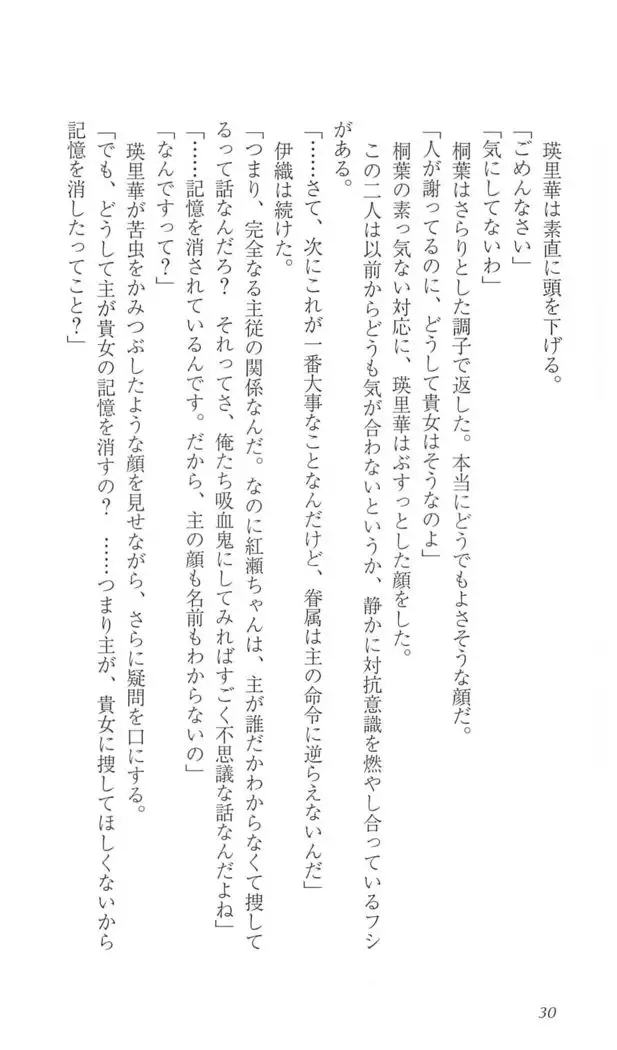 瑛里華は素直に頭を下げる。
「ごめんなさい」
「気にしてないわ」
桐葉はさらりとした調子で返した。本当にどうでもよさそうな顔だ。
「人が謝ってるのに、どうして貴女はそうなのよ」
桐葉の素っ気ない対応に、瑛里華はぶすっとした顔をした。
この二人は以前からどうも気が合わないというか、静かに対抗意識を燃やし合っているフシ
がある。
「……さて、次にこれが一番大事なことなんだけど、眷属は主の命令に逆らえないんだ」
伊織は続けた。
「つまり、完全なる主従の関係なんだ。なのに紅瀬ちゃんは、主が誰だかわからなくて捜して
るって話なんだろ？　それってさ、俺たち吸血鬼にしてみればすごく不思議な話なんだよね」
「……記憶を消されているんです。だから、主の顔も名前もわからないの」
「なんですって？」
瑛里華が苦虫をかみつぶしたような顔を見せながら、さらに疑問を口にする。
「でも、どうして主が貴女の記憶を消すの？　……つまり主が、貴女に捜してほしくないから
記憶を消したってこと？」
30